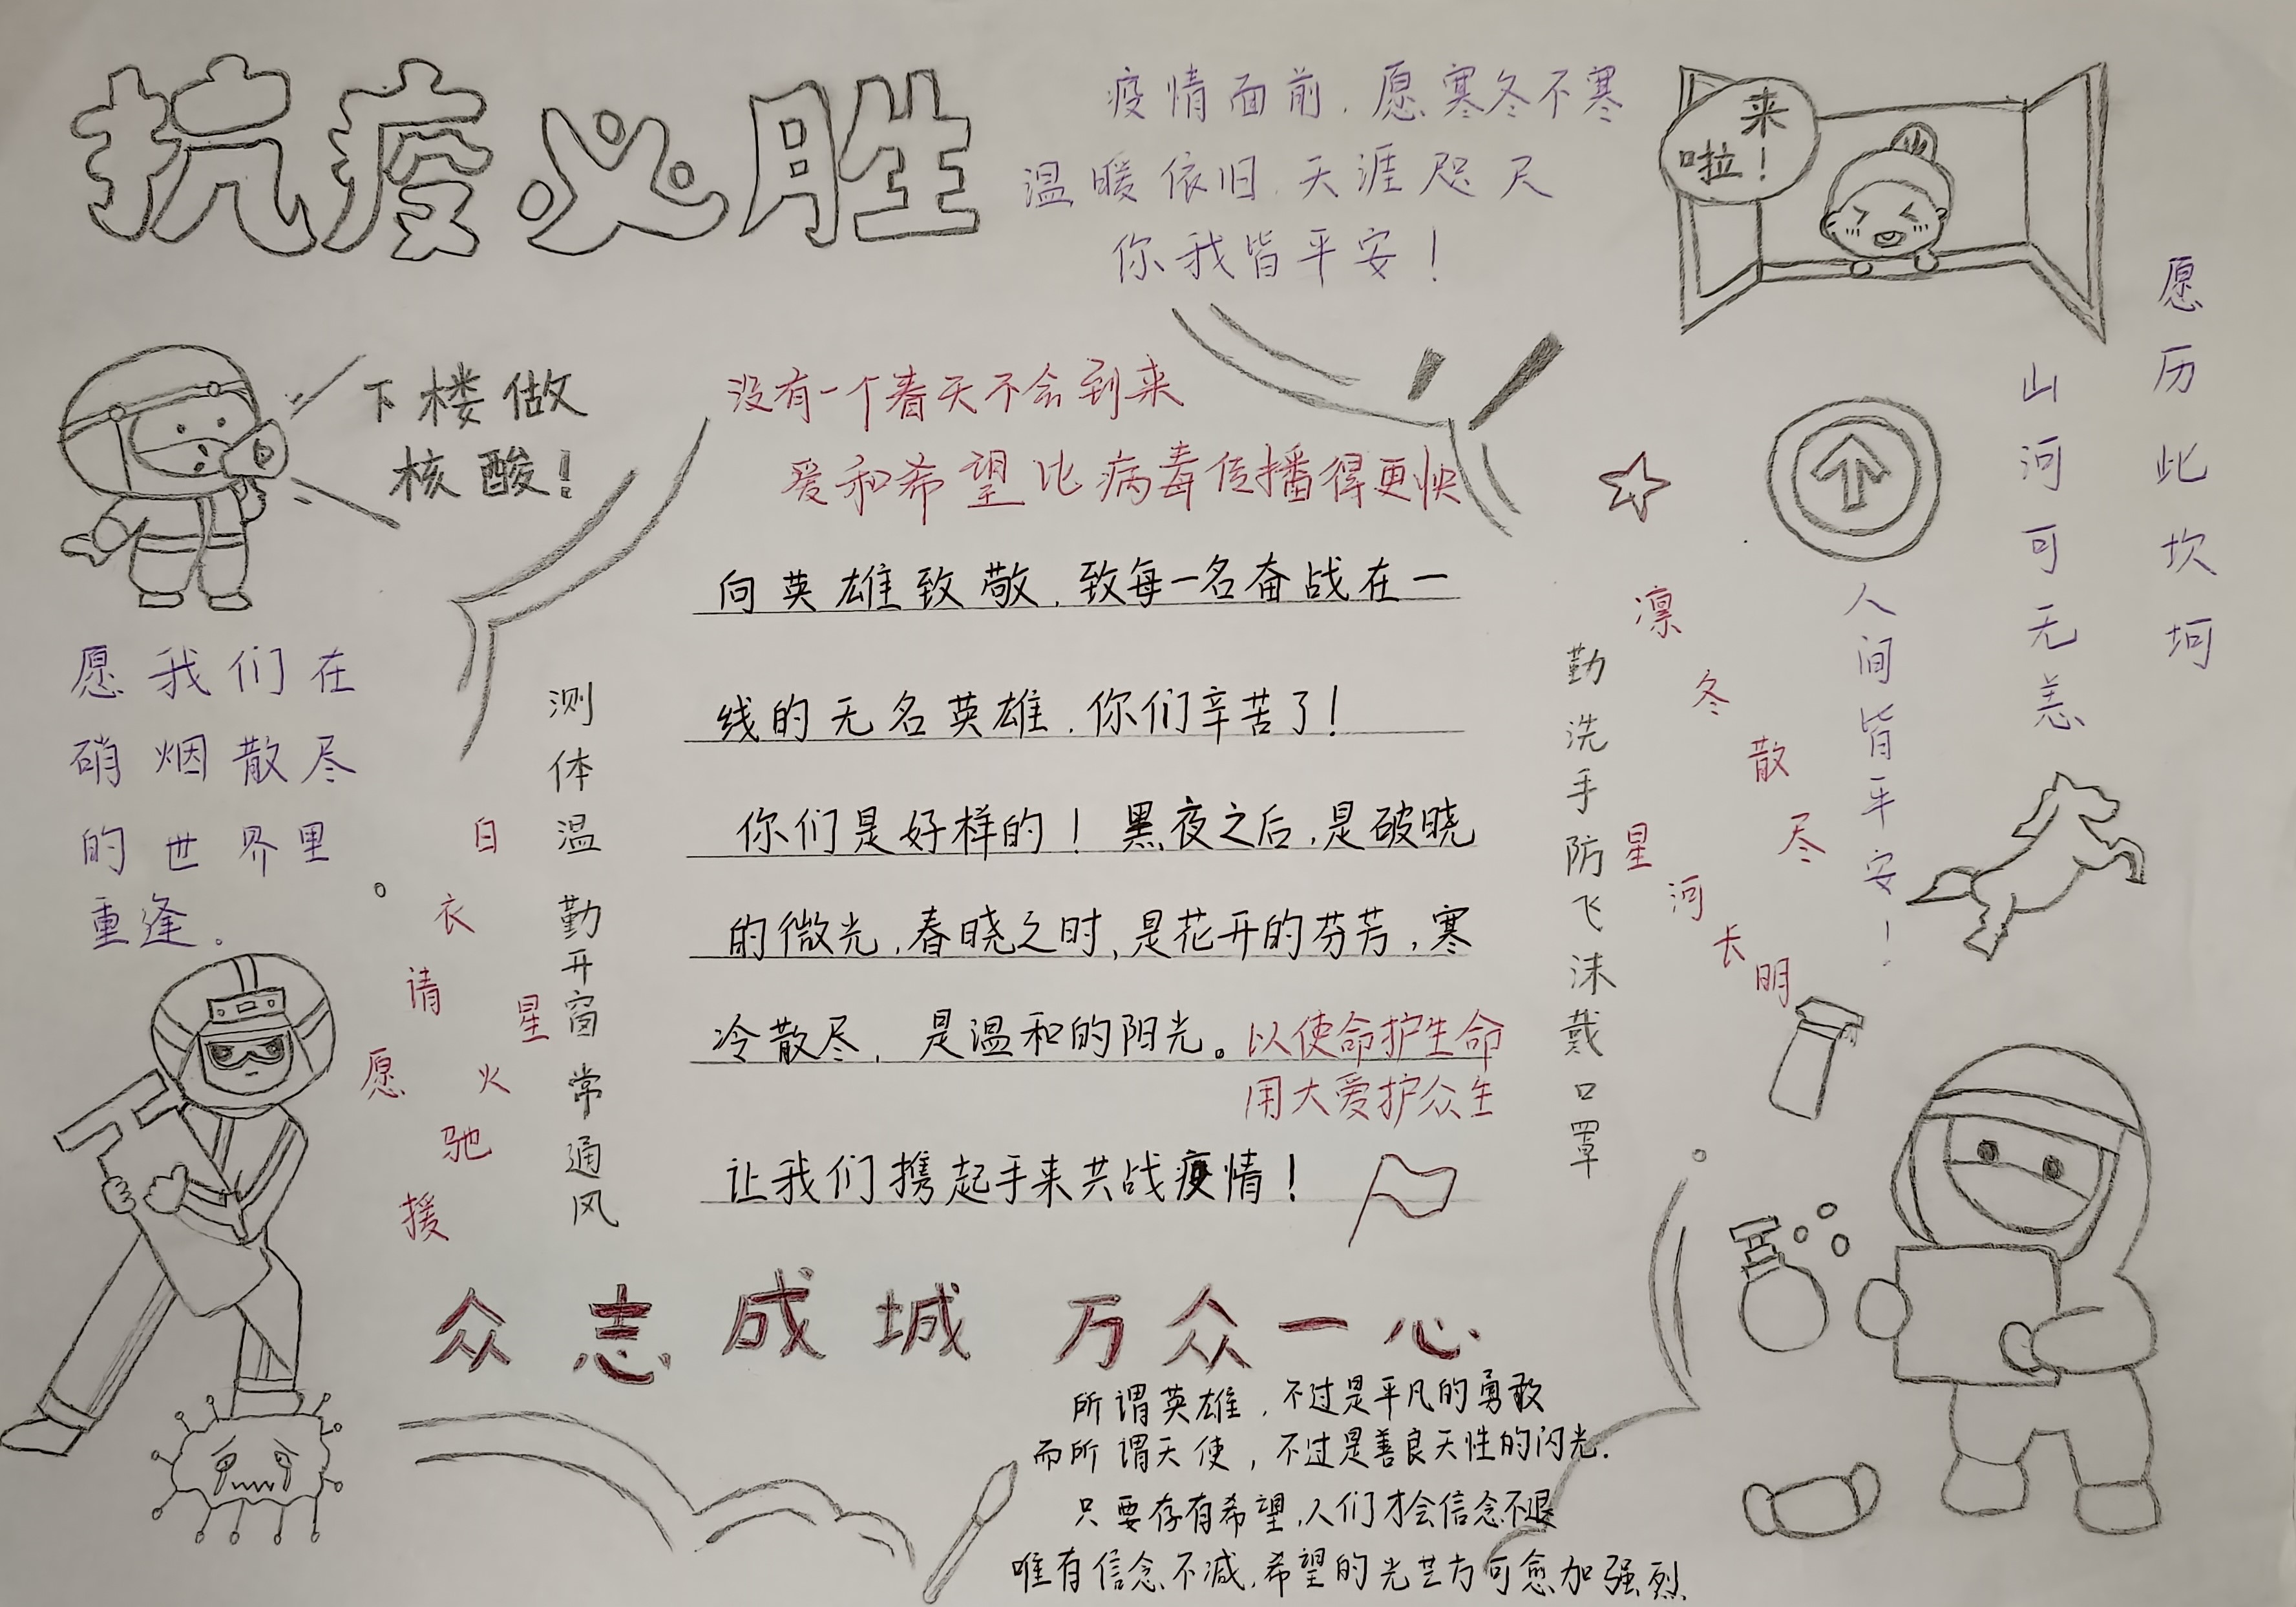 抗疫必胜
疫情面前，愿寒冬不寒
温暖依旧，天涯咫尺
你我皆平安！
来
啦！
下楼做
核酸！
没有一个春天不会到来
爱和希望比病毒传播得更快
向英雄致敬，致每一名奋战在一
线的无名英雄，你们辛苦了！
你们是好样的！黑夜之后，是破晓
的微光，春晓之时，是花开的芬芳，寒
冷散尽，是温和的阳光。
以使命护生命
用大爱护众生
让我们携起手来共战疫情！
愿我们在
硝烟散尽
的世界里
重逢。
白衣请愿
星火驰援
测体温勤开窗常通风
勤洗手防飞沫戴口罩
凛冬散尽
星河长明
愿历此坎坷
山河可无恙
人间皆平安！
众志成城 万众一心
所谓英雄，不过是平凡的勇敢
而所谓天使，不过是善良天性的闪光.
只要存有希望，人们才会信念不退
唯有信念不减，希望的光芒方可愈加强烈